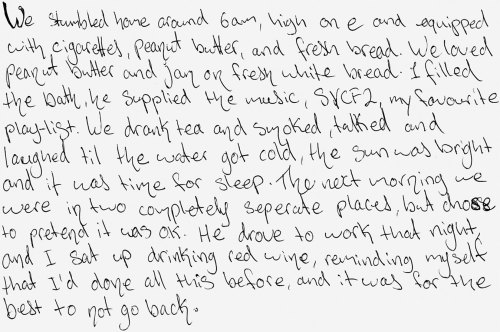 We stumbled home around 6am, high on e and equipped
with cigarettes, peanut butter, and fresh bread. We loved
peanut butter and jam on fresh white bread. I filled
the bath, he supplied the music, SVCF2, my favourite
play-list. We drank tea and smoked, talked and
laughed til the water got cold, the sun was bright
and it was time for sleep. The next morning we
were in two completely seperate places, but chose
to pretend it was ok. He drove to work that night,
and I sat up drinking red wine, reminding myself
that I'd done all this before, and it was for the
best to not go back.